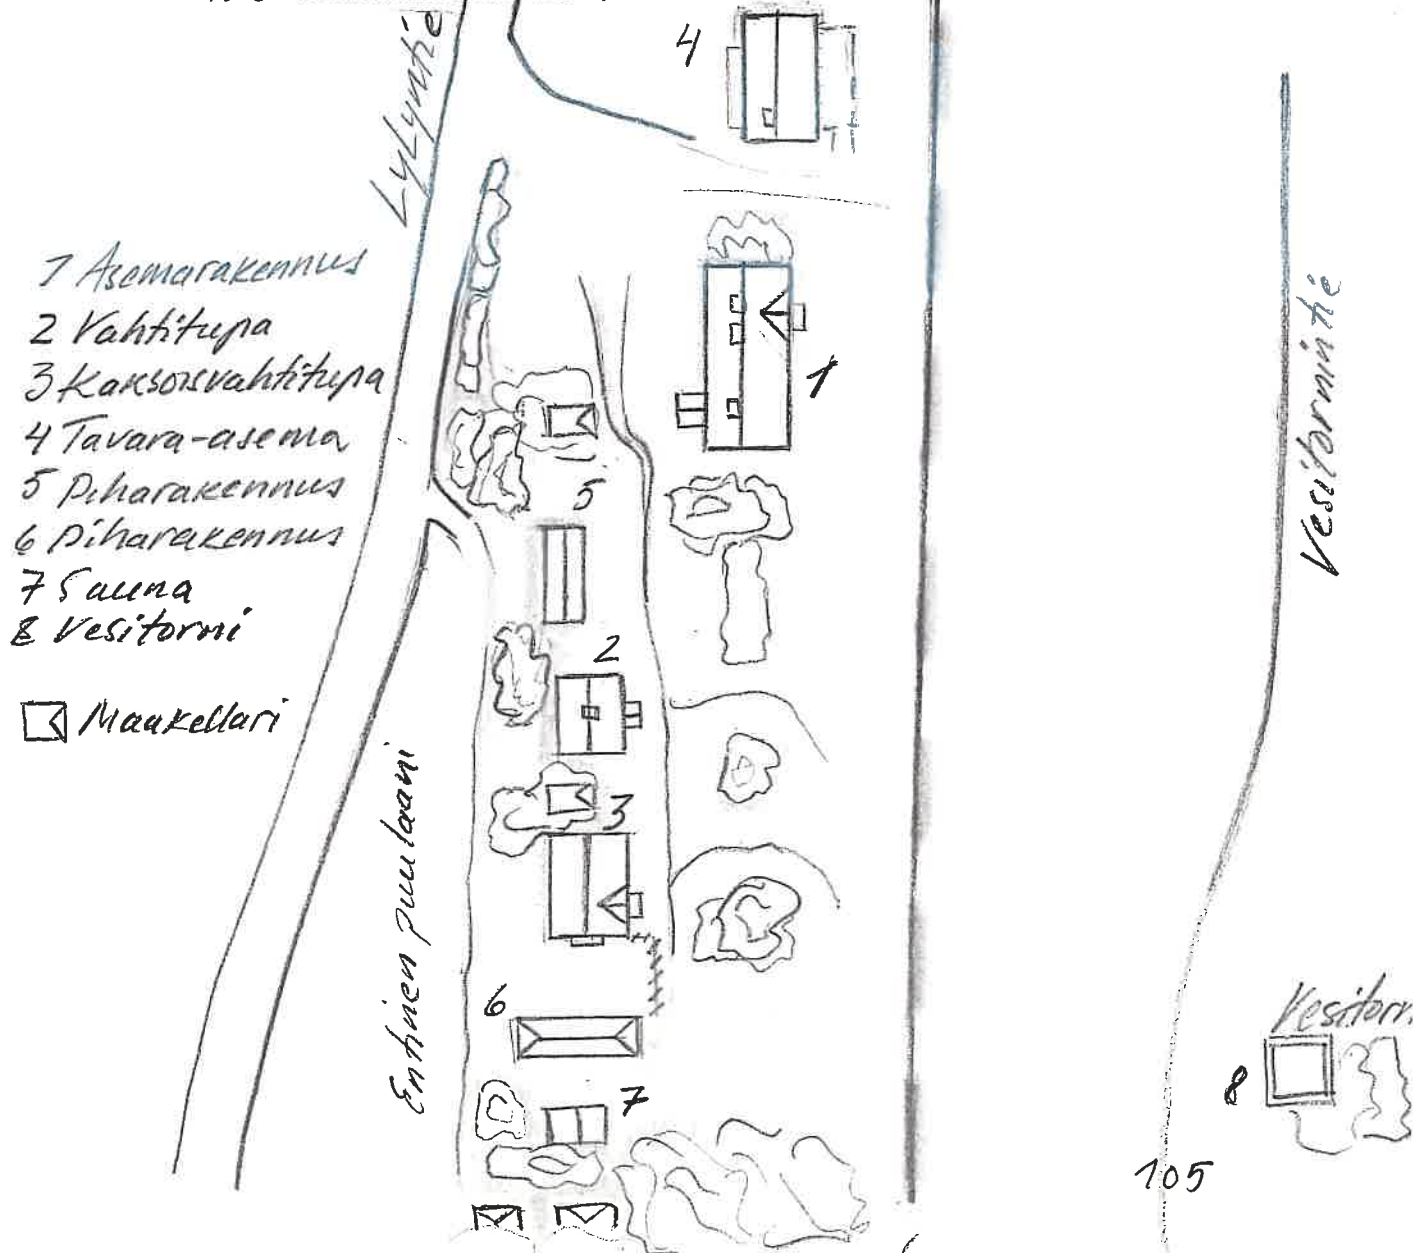 Lylyntie
4
1 Asemarakennus
2 Vahtitupa
3 Kaksoisvahtitupa
4 Tavara-asema
5 Piharakennus
6 Piharakennus
7 Sauna
8 Vesitorni
Maakellari
1
5
2
3
6
7
Entinen puulaani
Vesitornintie
Vesitorn
8
105